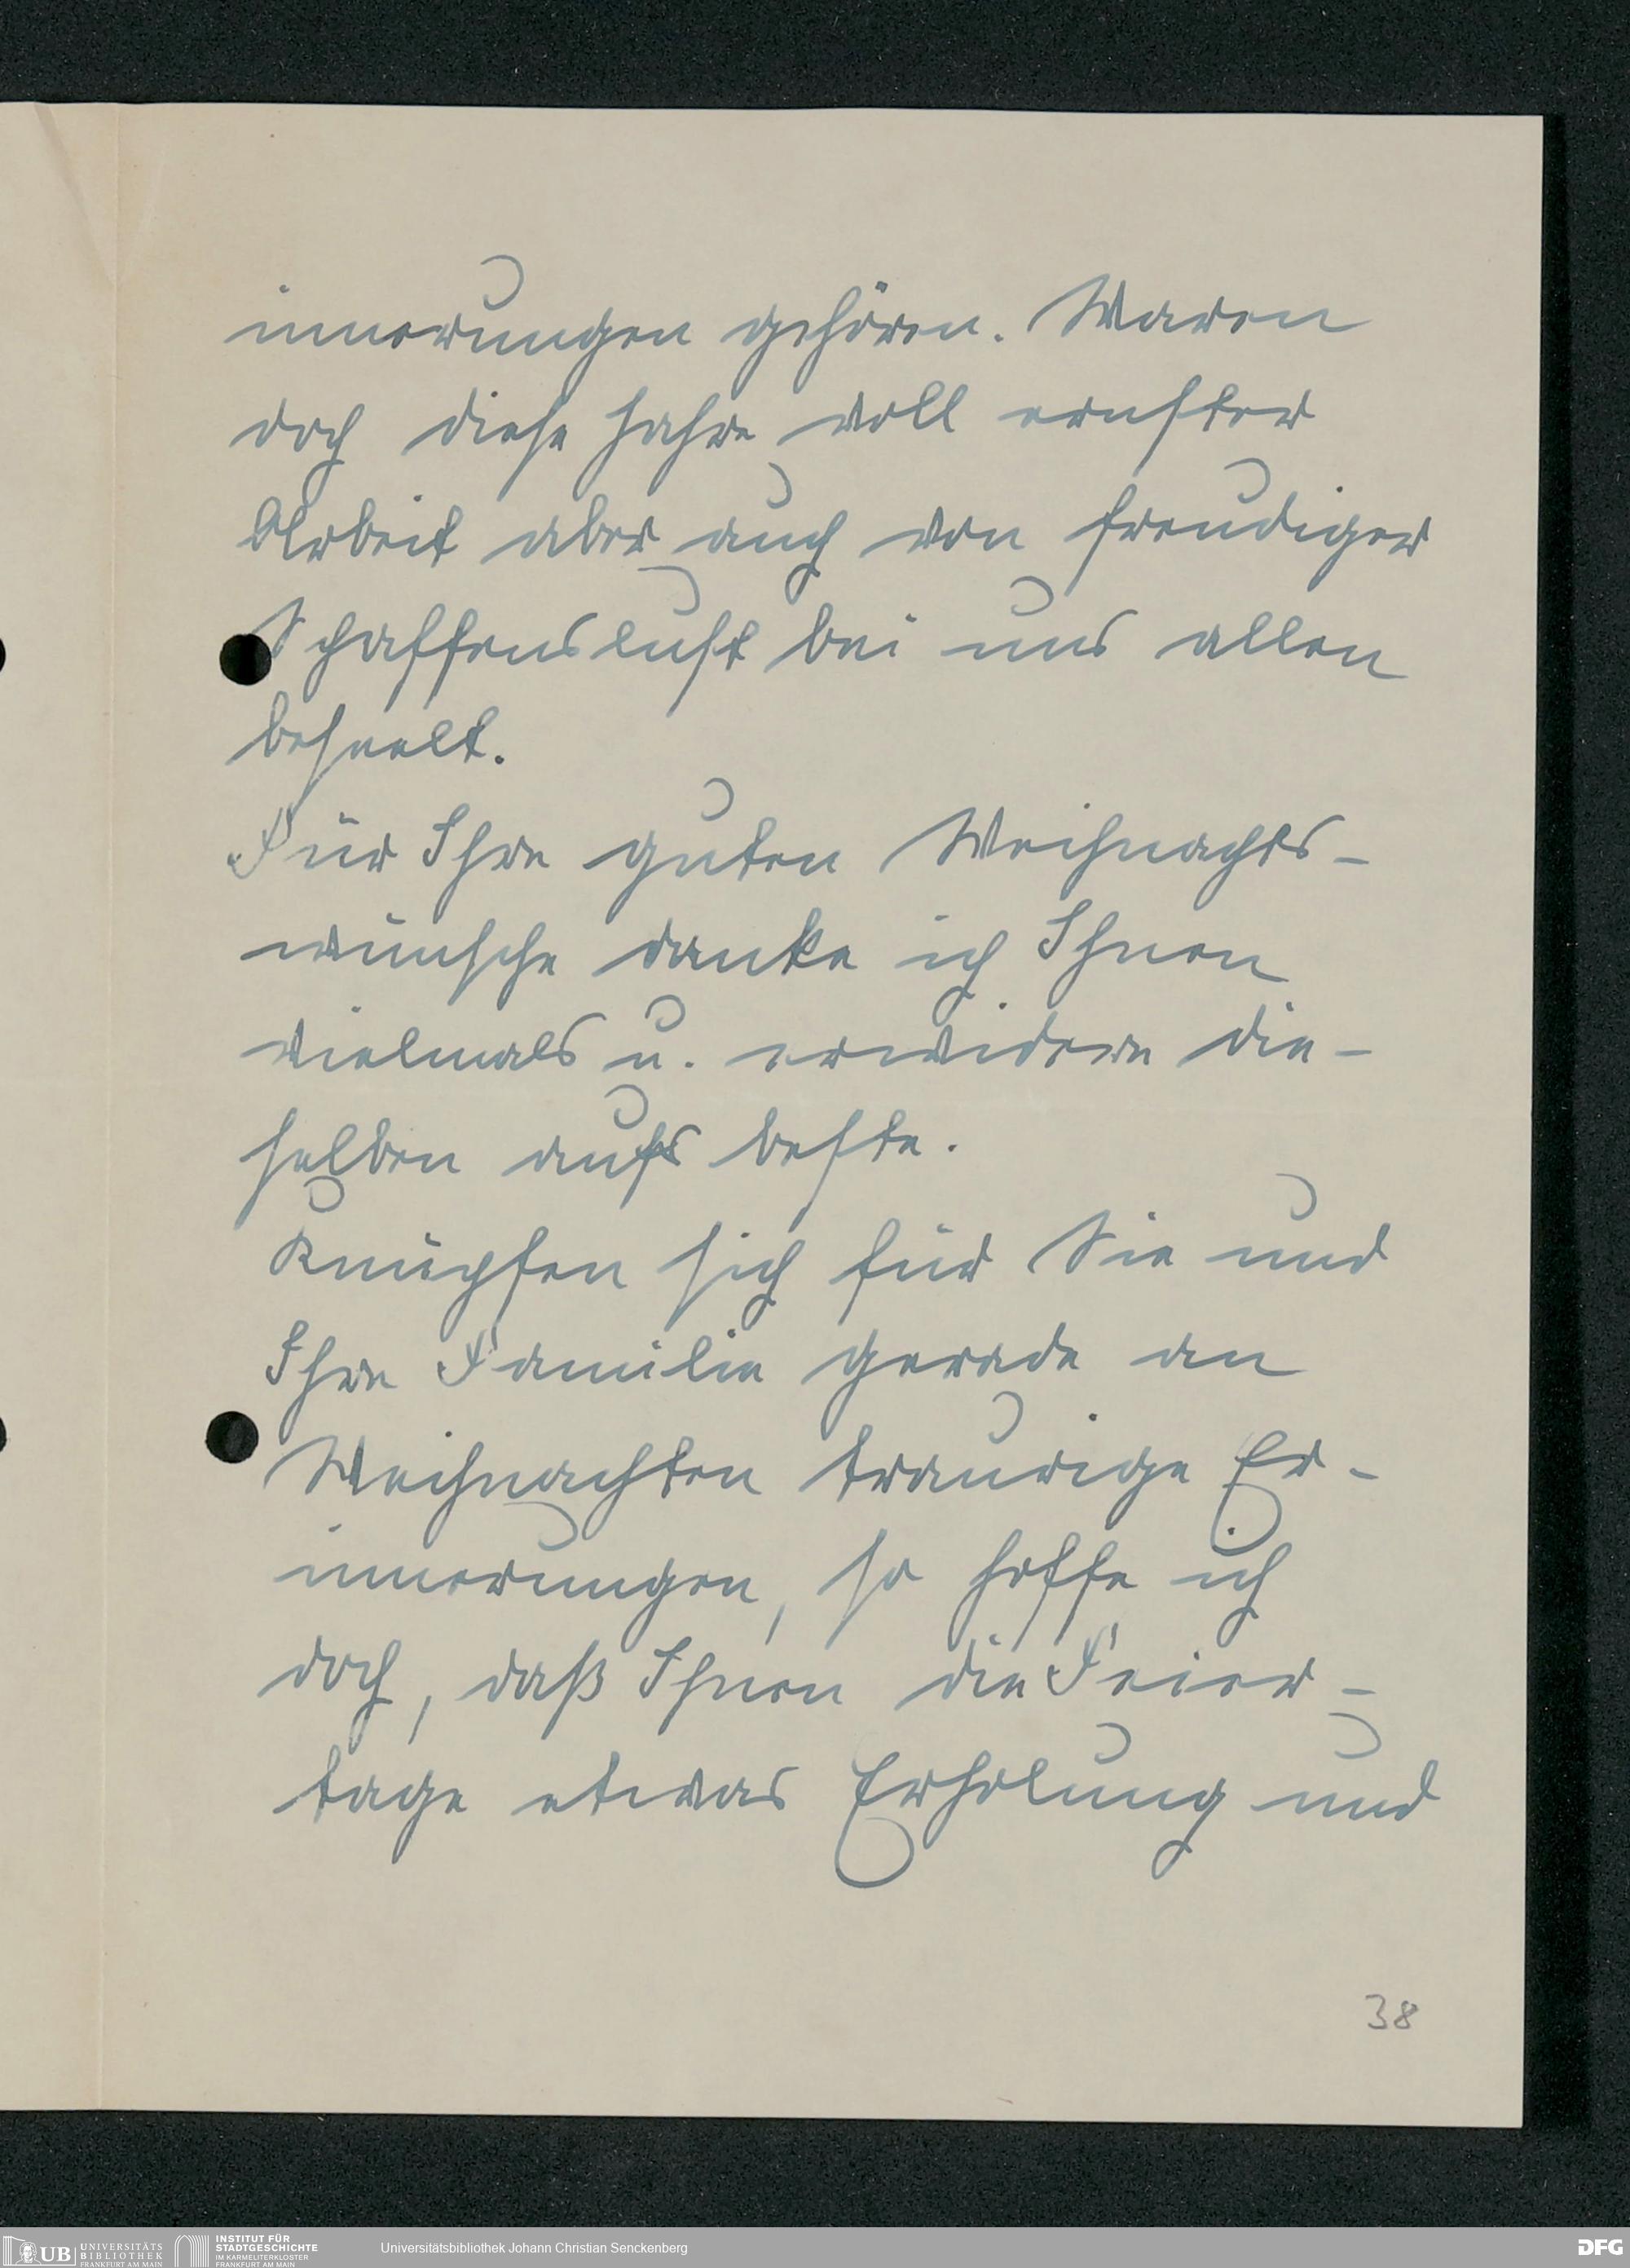 innerungen gehören. Waren
doch diese Jahre voll ernster
Arbeit aber auch von freudiger
Schaffenslust bei uns allen
beseelt.
Für Ihre guten Weihnachts-
wünsche danke ich Ihnen
vielmals u. erwidere die-
selben aufs beste.
Knüpfen sich für Sie und
Ihre Familie gerade an
Weihnachten traurige Er-
innerungen, so hoffe ich
doch, daß Ihnen die Feier-
tage etwas Erholung und
38
UB UNIVERSITÄTS BIBLIOTHEK FRANKFURT AM MAIN
INSTITUT FÜR STADTGESCHICHTE IM KARMELITERKLOSTER FRANKFURT AM MAIN
Universitätsbibliothek Johann Christian Senckenberg
DFG